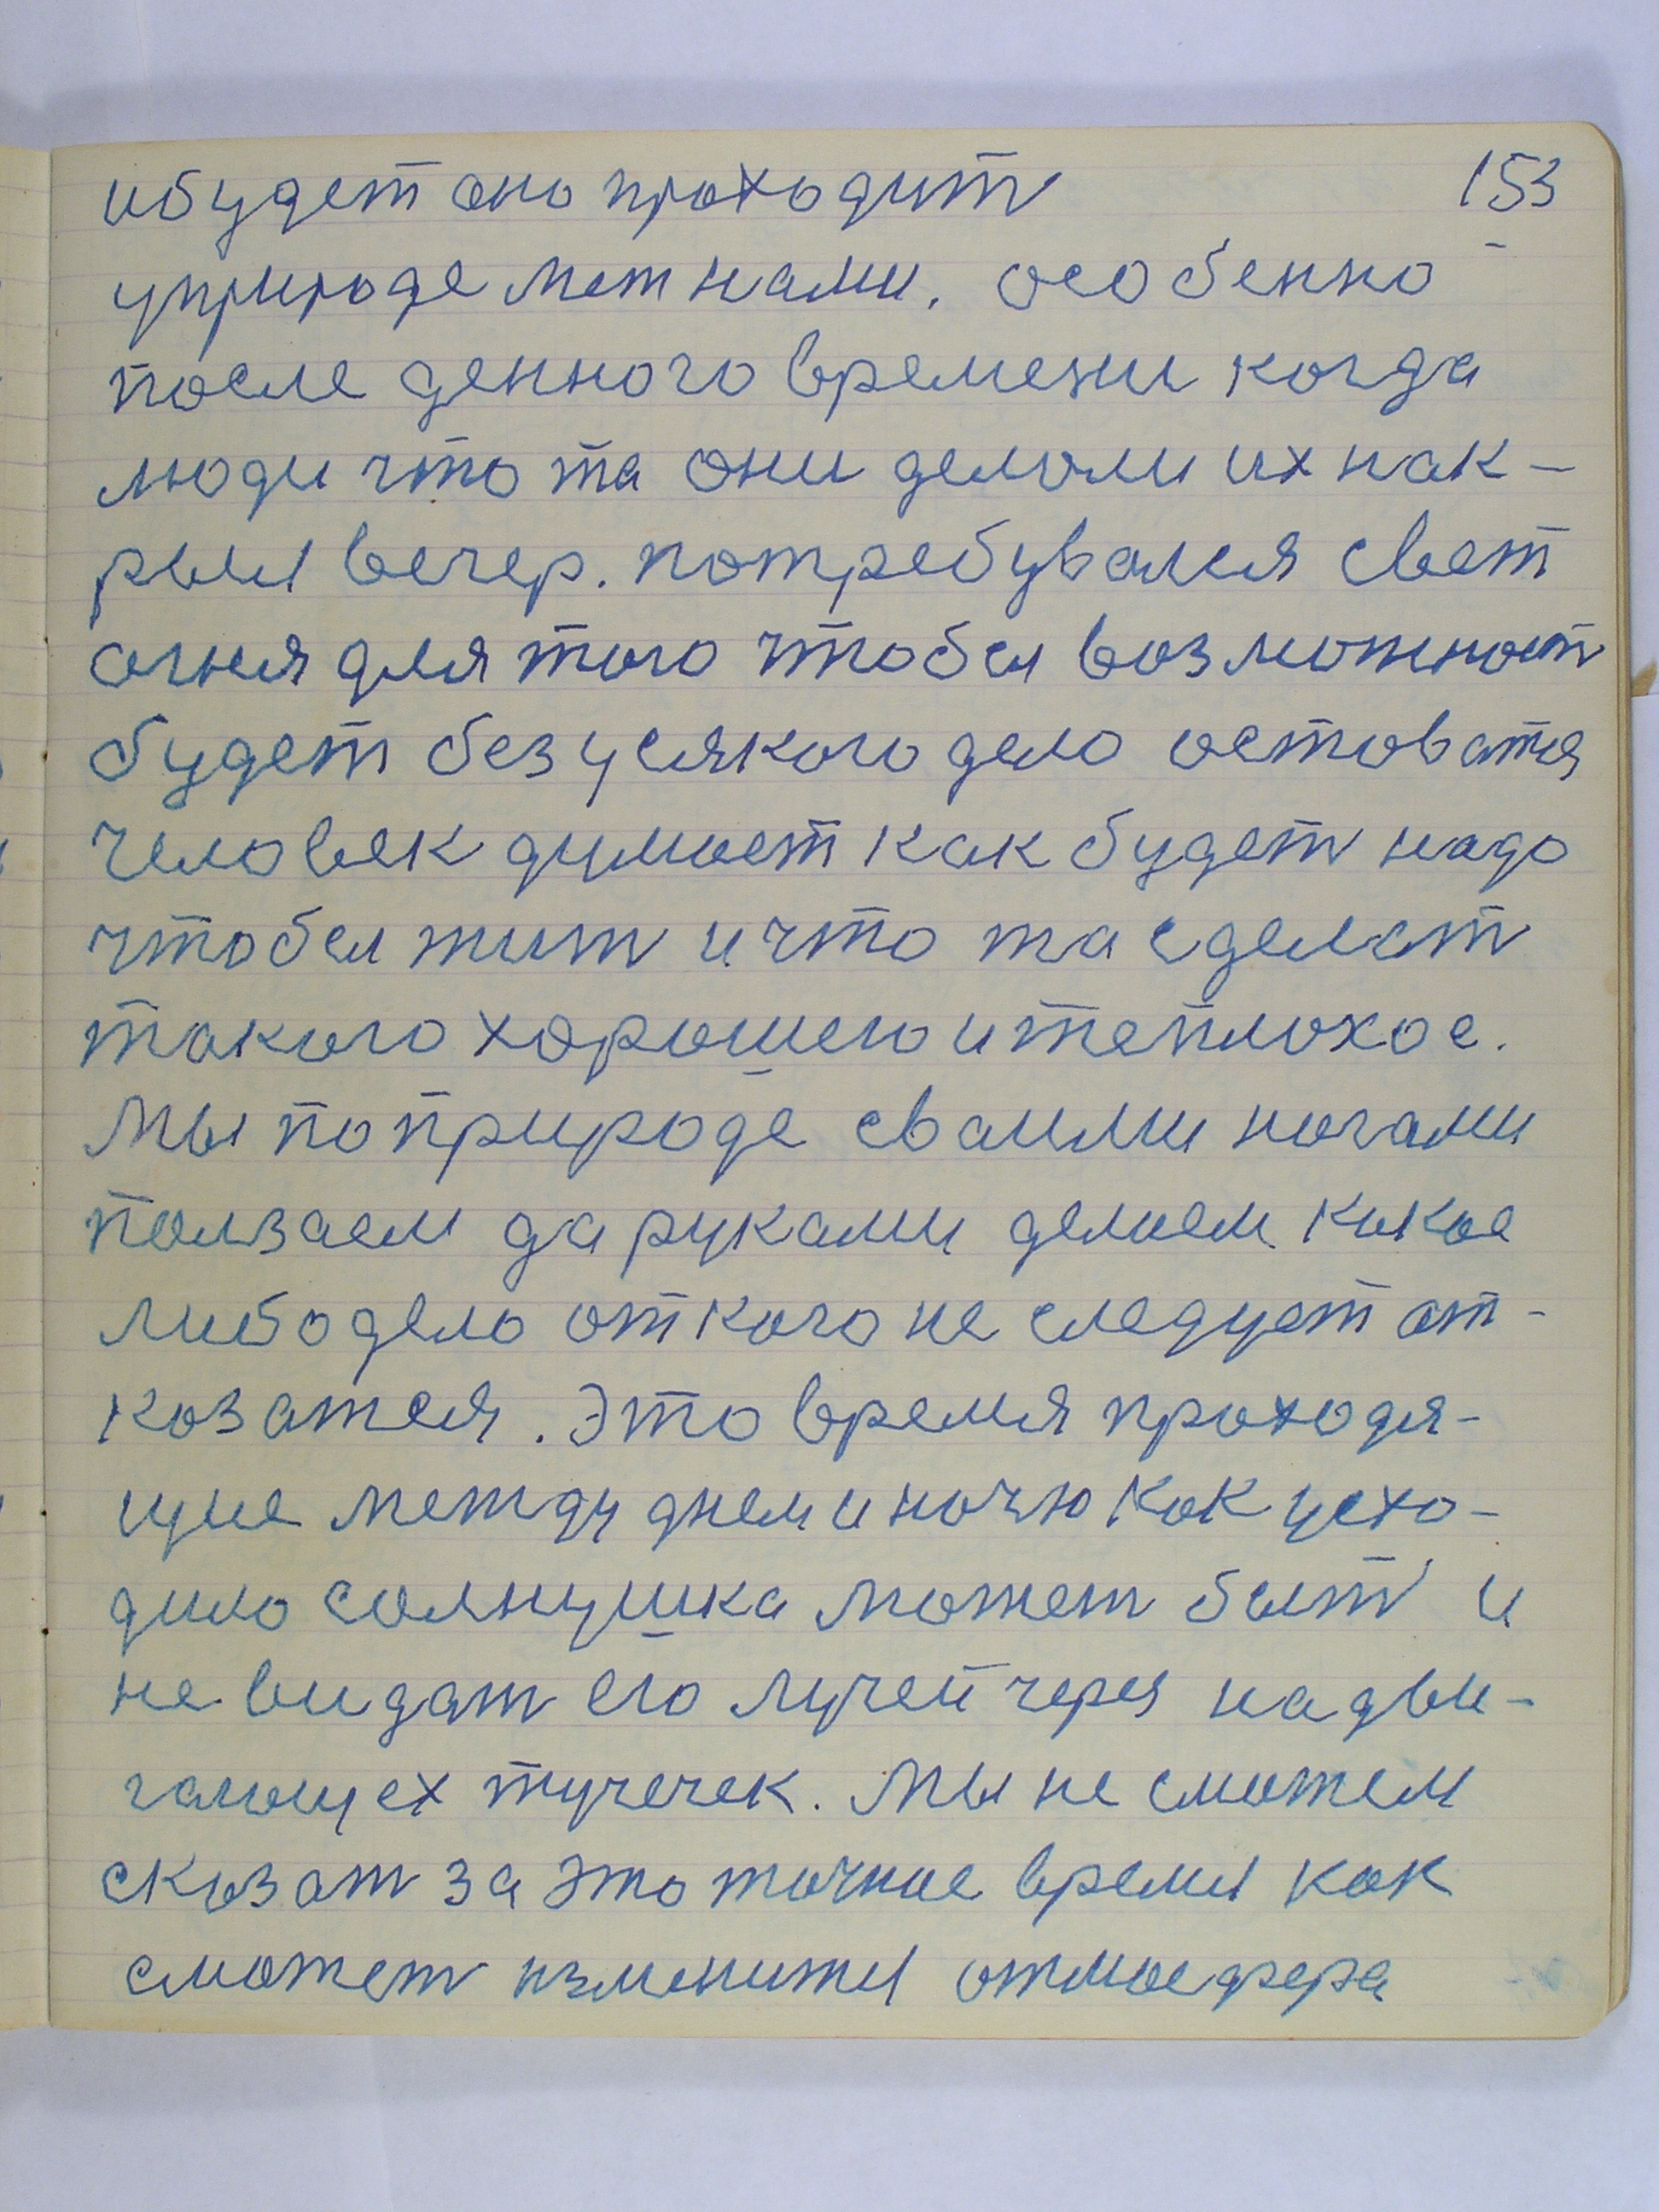 и будет оно проходит 153
у природе меж нами. особенно
после денного времени когда
люди что та они делали их нак-
рыл вечер. потребувался свет
огня для того чтобы возможност
будет без усякого дела оставатся
человек думает как будет надо
чтобы жит и что та сделат
такого хорошего и теплохое.
Мы по природе сваими ногами
ползаем да руками делаем какое
либо дело от кого не следует от-
козатся. Это время проходя-
щие между днем и ночю как усхо-
дило солнушка может быт и
не видат его лучей через надви-
гающех тучечек. Мы не сможем
сказат за это точное время как
сможет изменится отмосфера